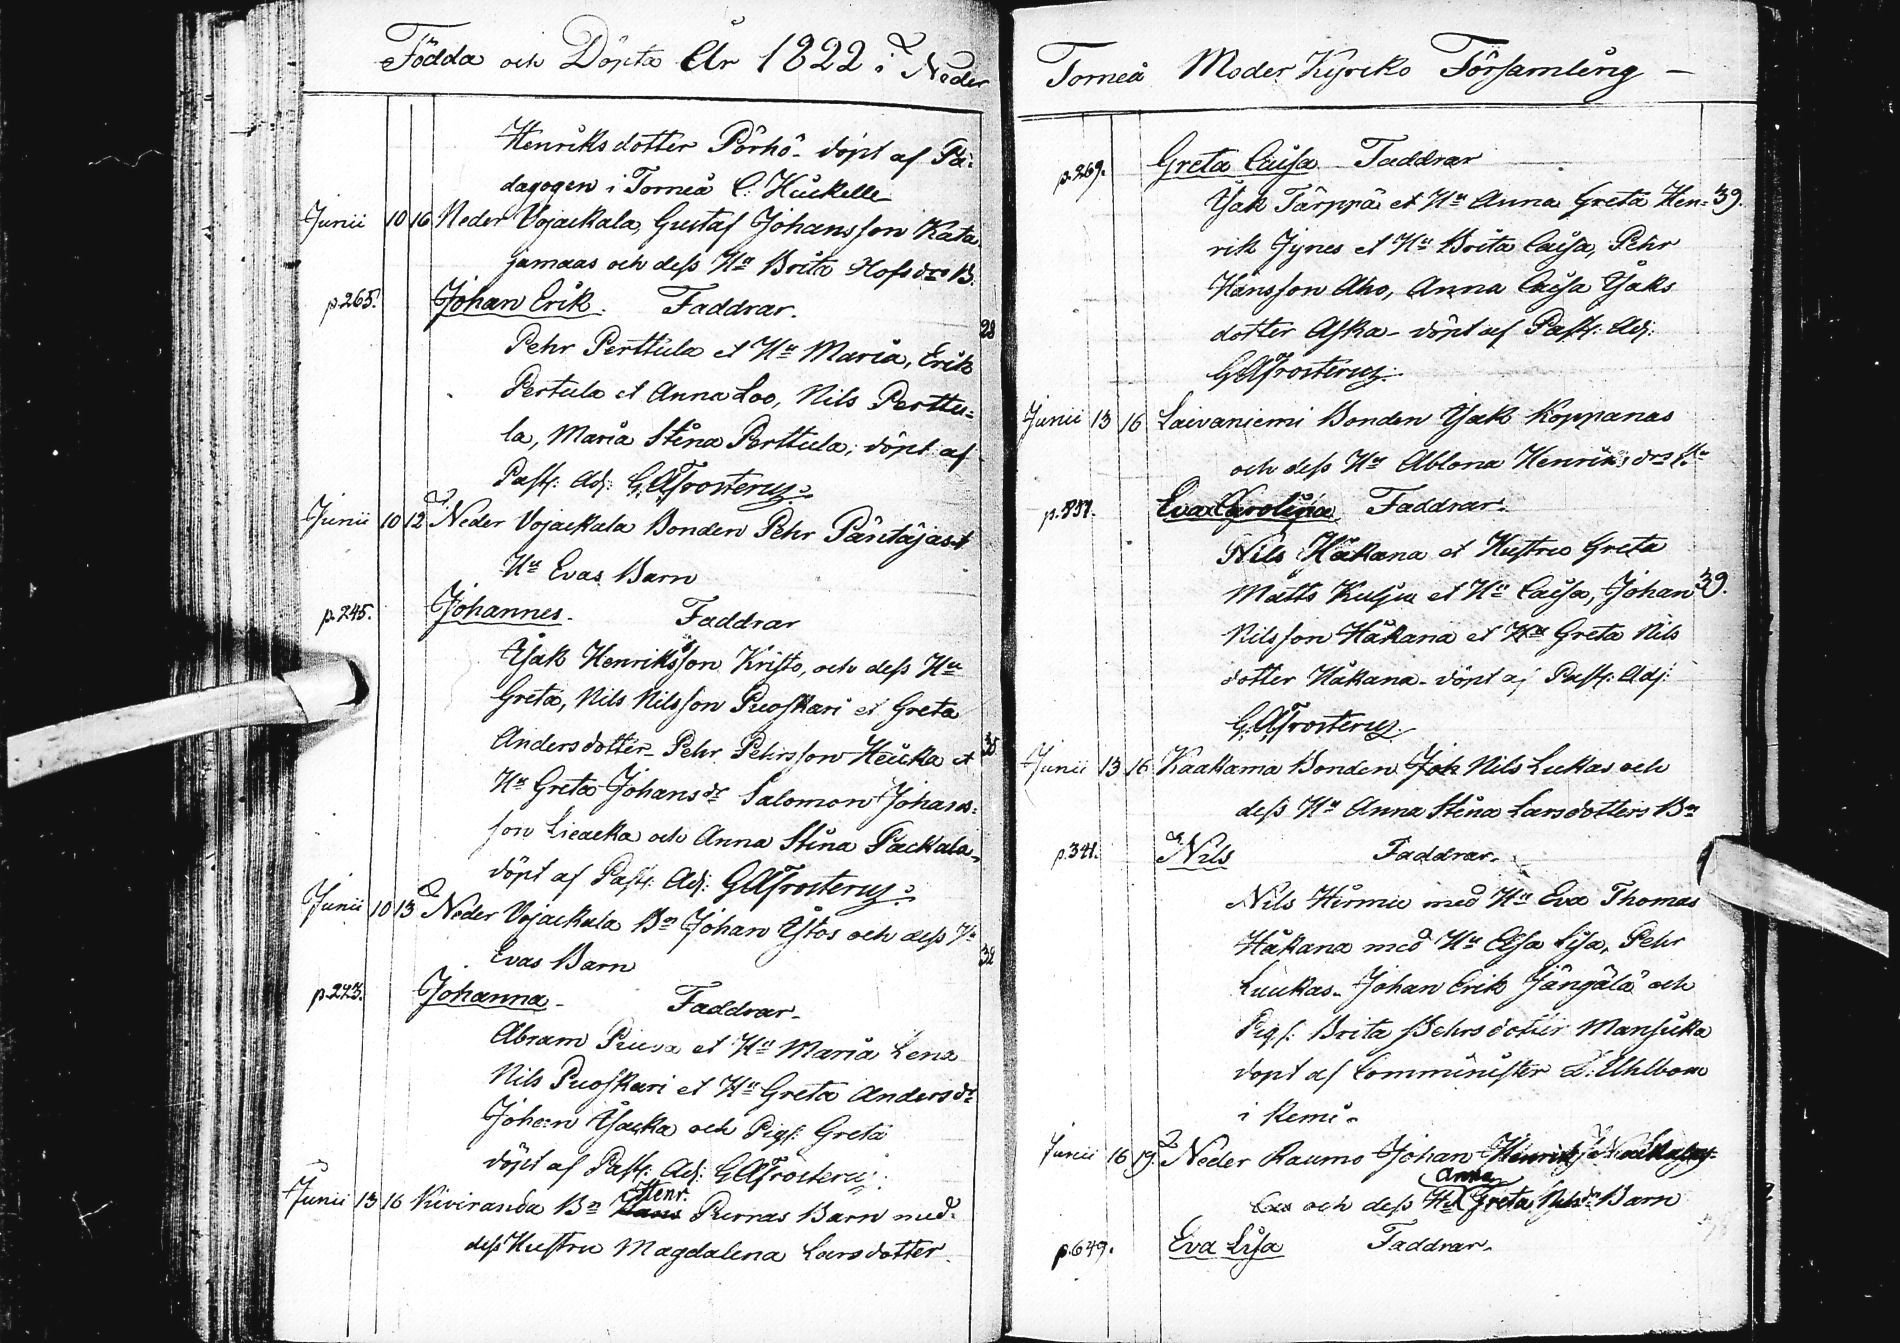 Födda och Döpta År 1822 i Neder
Henriksdotter Pörhö - döpt af Pä-
dagogen i Torneå C. Heickell
Junii 10 16 Neder Vojackala, Gustaf Johansson Kata
jamaas och dess Hu Brita Hofsdrs B.
p.265. Johan Erik. Faddrar.
28
Pehr Perttula et Hu Maria, Erik
Pertula et Anna Loo, Nils Perttu-
la, Maria Stina Perttula, döpt af
Past: Adj: G.A. Frosterus
Junii 10 12 Neder Vojackala Bonden Pehr Päntäjas et
Hu Evas Barn
p.245. Johannes. Faddrar
Isak Henriksson Kristo, och dess Hu
Greta, Nils Nilsson Puoskari et Greta
Andersdotter - Pehr Pehrsson Heicka et 35
Hu Greta Johansdr Salomon Johans-
son Lieacka och Anna Stina Packala -
döpt af Past: Adj: GAFrosterus
Junii 10 13 Neder Vojackala Bn Johan Ystos och dess Hu
Evas Barn 32
p.223. Johanna - Faddrar -
Abram Prusa et Hu Maria Lena
Nils Puoskari et Hu Greta Andersdr
Johan Isacka och Pigs: Greta
döpt af Past: Adj: GAFrosterus
Junii 13 16 Kiviranda Bn Henr. Purnas Barn med
dess Hustru Magdalena Larsdotter
Torneå Moder Kyrko Församling -
p.269. Greta Caisa Faddrar
Isak Tärppä et Hu Anna Greta Hen- 39.
rik Jynes et Hu Brita Caisa, Pehr
Hansson Aho, Anna Caisa Isaks
dotter Aska - döpt af Past: Adj:
GAFrosterus
Junii 13 16 Laivaniemi Bonden Isak Koppanas
och dess Hu Ablona Henriksdrs
p.837. Eva Carolina Faddrar.
Nils Håkana et Hustru Greta
Matts Kulju et Hu Caisa, Johan 39.
Nilsson Håkana et Greta Nils
dotter Håkana - döpt af Past: Adj:
G.A.Frosterus
Junii 13 16 Kaakama Bonden Joh Nils Lukas och
dess Hu Anna Stina Larsdotters Bn
p.341. Nils Faddrar.
Nils Hirmu med Hu Eva Thomas
Håkana med Hu Lisa, Pehr
Luukas - Johan Erik Jängälä och
Pigs: Brita Pehrsdotter Mansikka
döpt af Comminister Uhlbom
i Kemi -
Junii 16 19 Neder Raumo Johan
Anna
och dess Hu Greta Barn
p.649. Eva Lisa Faddrar.